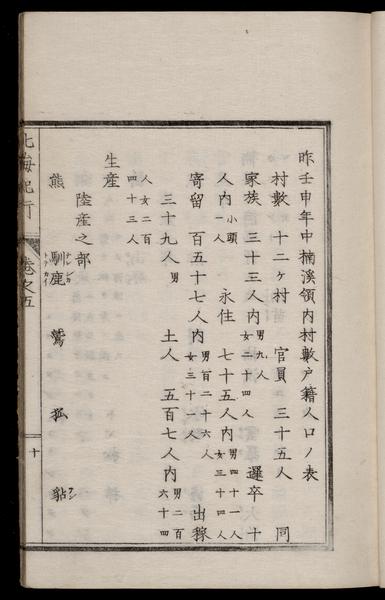 昨壬申年中楠溪領内村數戸籍人口ノ表
村數 十二ヶ村 官員 三十五人 同
家族 三十三人内男九人女二十四人 邏卒十
人内小頭一人 永住 七十五人内男四十一人女三十四人
寄留 百五十七人内男百二十六人女三十一人 出稼
三十九人男 土人 五百七人内男二百六十四
人女二百四十三人
生産
陸産之部
熊 馴鹿 鷲 狐 貂
北海紀行 巻之五 十